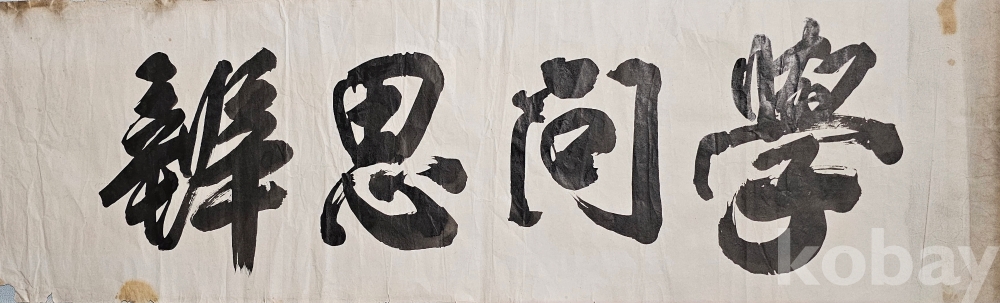 學問思辨
kobay